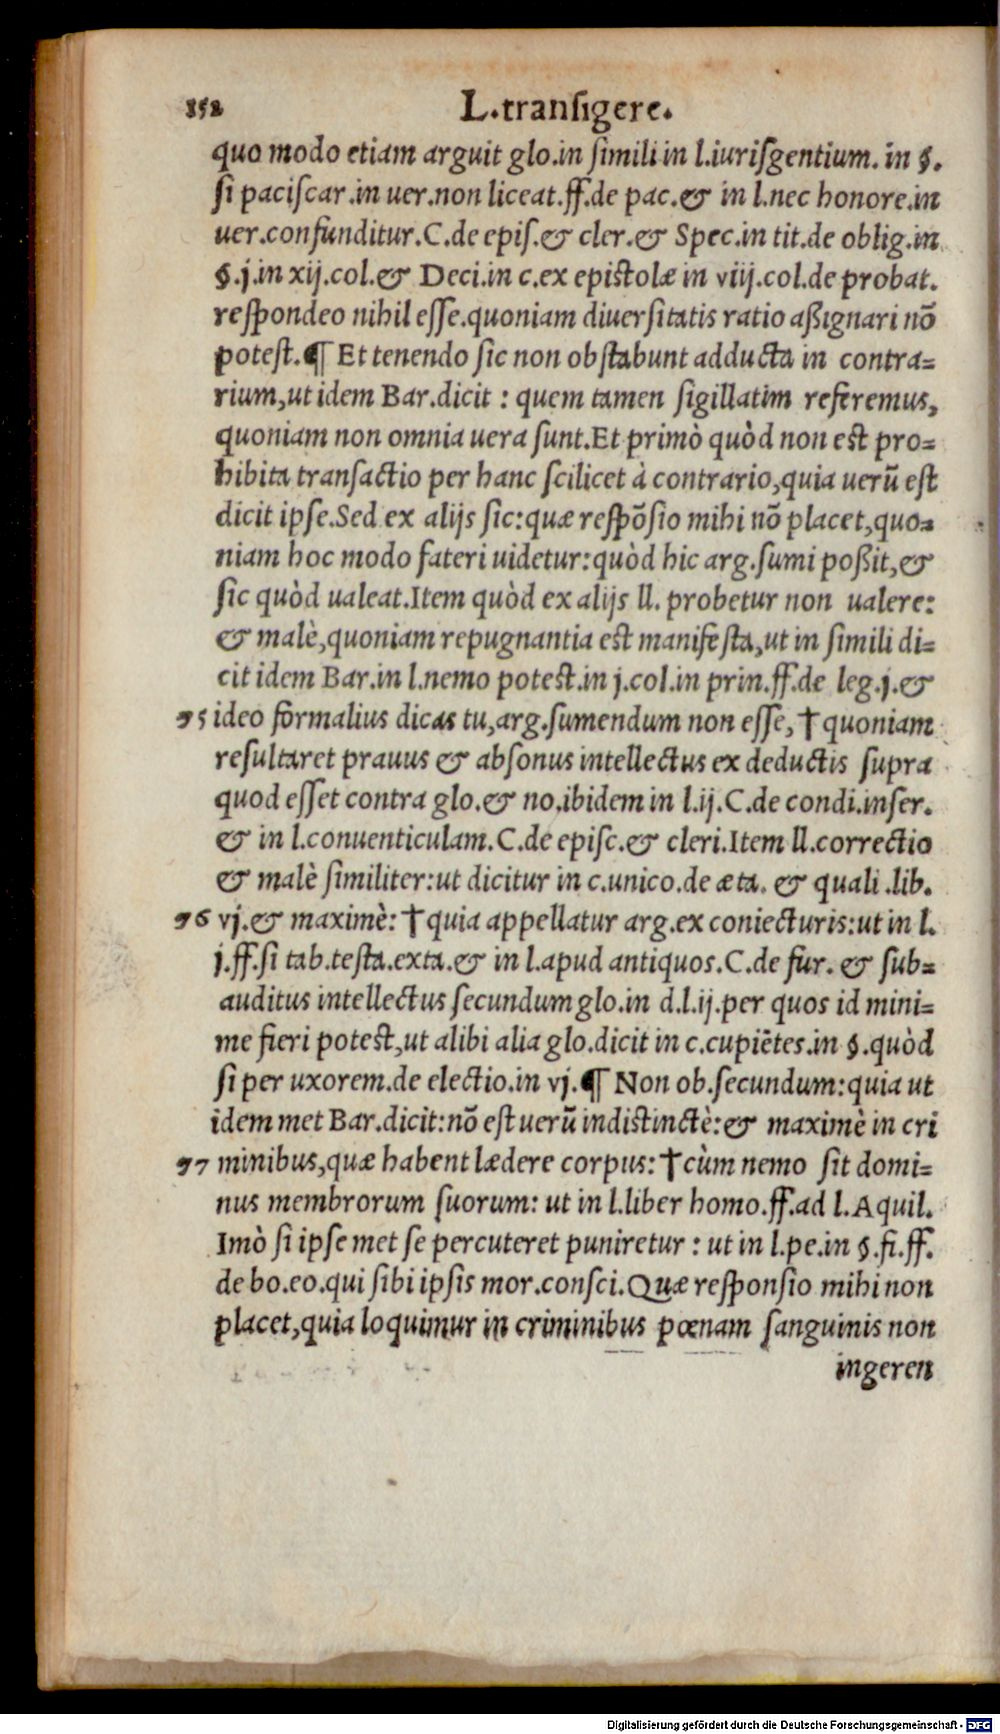 152
L.transigere.
quo modo etiam arguit glo.in simili in l.iurisgentium. in §.
si paciscar.in uer.non liceat.ff.de pac.& in l.nec honore.in
uer.confunditur.C.de epis.& cler.& Spec.in tit.de oblig.in
§.j.in xij.col.& Deci.in c.ex epistolæ in viij.col.de probat.
respondeo nihil esse.quoniam diuersitatis ratio aßignari nõ
potest.¶ Et tenendo sic non obstabunt adducta in contra=
rium,ut idem Bar.dicit : quem tamen sigillatim referemus,
quoniam non omnia uera sunt.Et primò quòd non est pro=
hibita transactio per hanc scilicet à contrario,quia uerũ est
dicit ipse.Sed ex alijs sic:quæ respõsio mihi nõ placet,quo=
niam hoc modo fateri uidetur:quòd hic arg.sumi poßit,&
sic quòd ualeat.Item quòd ex alijs ll. probetur non ualere:
& malè,quoniam repugnantia est manifesta,ut in simili di=
cit idem Bar.in l.nemo potest.in j.col.in prin.ff.de leg.j.&
95 ideo formalius dicas tu,arg.sumendum non esse, † quoniam
resultaret prauus & absonus intellectus ex deductis supra
quod esset contra glo.& no.ibidem in l.ij.C.de condi.inser.
& in l.conuenticulam.C.de episc.& cleri.Item ll.correctio
& malè similiter:ut dicitur in c.unico.de æta. & quali .lib.
96 vj.& maximè: † quia appellatur arg.ex coniecturis:ut in l.
j.ff.si tab.testa.exta.& in l.apud antiquos.C.de fur. & sub=
auditus intellectus secundum glo.in d.l.ij.per quos id mini=
me fieri potest,ut alibi alia glo.dicit in c.cupiẽtes.in §.quòd
si per uxorem.de electio.in vj.¶ Non ob.secundum:quia ut
idem met Bar.dicit:nõ est uerũ indistinctè:& maximè in cri
97 minibus,quæ habent lædere corpus: † cùm nemo sit domi=
nus membrorum suorum: ut in l.liber homo.ff.ad l.Aquil.
Imò si ipse met se percuteret puniretur : ut in l.pe.in §.fi.ff.
de bo.eo.qui sibi ipsis mor.consci.Quæ responsio mihi non
placet,quia loquimur in criminibus pœnam sanguinis non
ingeren
Digitalisierung gefördert durch die Deutsche Forschungsgemeinschaft - DFG